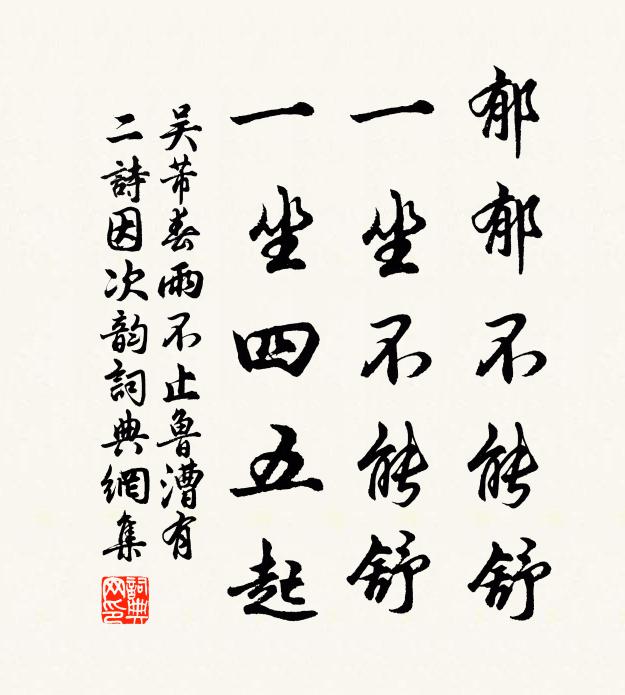 郁郁不能舒
一坐不能舒
一坐四五起
吴芾春雨不止魯漕有
二詩因次韵詞典網集
詞典網印